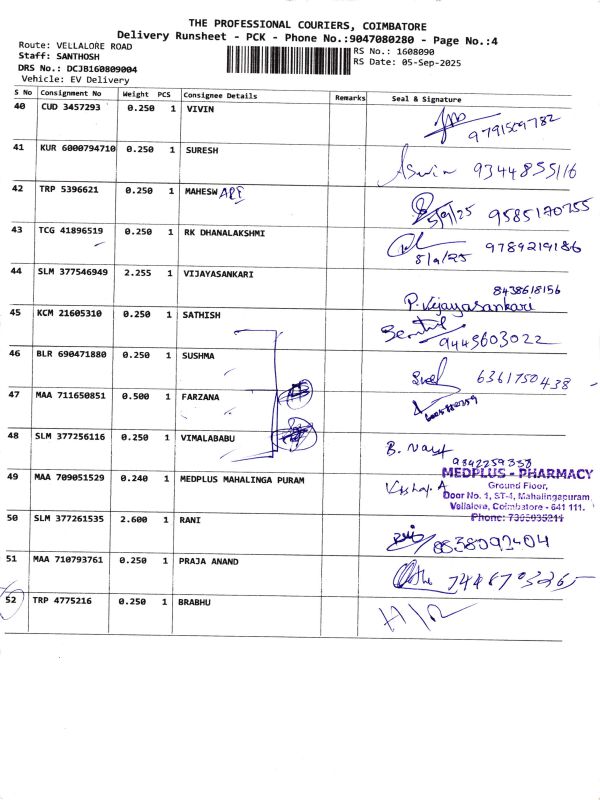 THE PROFESSIONAL COURIERS, COIMBATORE
Delivery Runsheet - PCK - Phone No.:9047080280 - Page No.:4
Route: VELLALORE ROAD
Staff: SANTHOSH
RS No.: 1608090
DRS No.: DCJB160809004
RS Date: 05-Sep-2025
Vehicle: EV Delivery
S No Consignment No Weight PCS Consignee Details Remarks Seal & Signature
40 CUD 3457293 0.250 1 VIVIN
9791509782
41 KUR 6000794710 0.250 1 SURESH
Aswin 9344855116
42 TRP 5396621 0.250 1 MAHESW ARI
5/9/25 9585170755
43 TCG 41896519 0.250 1 RK DHANALAKSHMI
9789219186
5/9/25
44 SLM 377546949 2.255 1 VIJAYASANKARI
8438618156
P. Vijayasankari
45 KCM 21605310 0.250 1 SATHISH
9443603022
46 BLR 690471880 0.250 1 SUSHMA
6361750438
47 MAA 711650851 0.500 1 FARZANA
48 SLM 377256116 0.250 1 VIMALABABU
9342259338
49 MAA 709051529 0.240 1 MEDPLUS MAHALINGA PURAM
MEDPLUS - PHARMACY
Ground Floor,
Door No. 1, ST-4, Mahalingapuram,
Vellalore, Coimbatore - 641 111.
Phone: 7395935211
50 SLM 377261535 2.600 1 RANI
8838092404
51 MAA 710793761 0.250 1 PRAJA ANAND
52 TRP 4775216 0.250 1 BRABHU